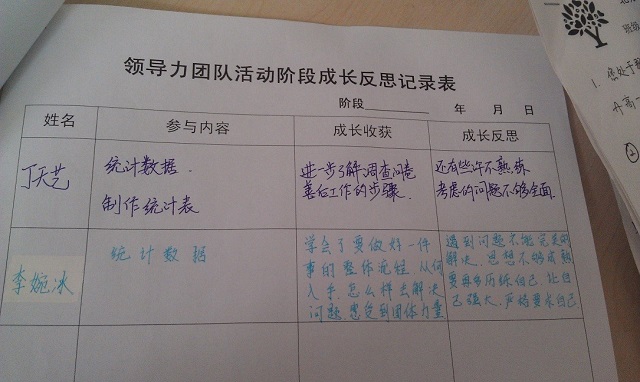 领导力团队活动阶段成长反思记录表
阶段________ 年 月 日
姓名 参与内容 成长收获 成长反思
丁天艺
统计数据.
制作统计表
进一步了解调查问卷
善后工作的步骤.
还有些许不熟练
考虑的问题不够全面.
李婉冰
统计数据
学会了要做好一件
事的整体流程.从何
入手.怎么样去解决
问题.感受到团体力量
遇到问题不能完美的
解决.思想不够成熟
要再多历练自己.让自
己强大.严格要求自己
班级
1.
②